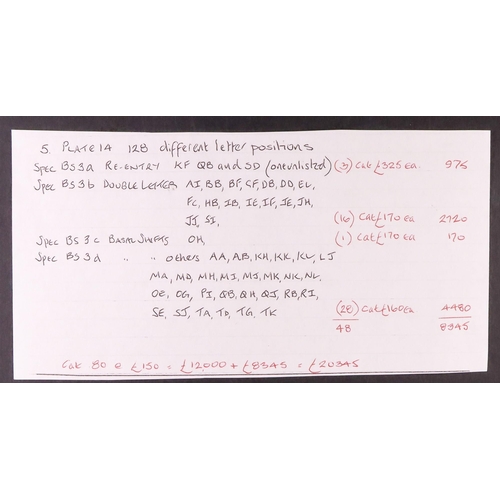 5. PLATE 14 128 different letter positions
Spec BS3a RE-ENTRY KF QB and SD (one unlisted) (3) Cat £325 ea. 975
Spec BS3b DOUBLE LETTER AI, BB, BF, CF, DB, DD, EL,
FC, HB, IB, IE, IF, JE, JH,
JJ, SI, (16) Cat £170 ea 2720
Spec BS3c BASAL SHIFTS OH, (1) Cat £170 ea 170
Spec BS3d " " others AA, AB, KH, KK, KL, LJ
MA, MD, MH, MI, MJ, MK, NK, NL,
OE, OG, PI, QB, QH, QJ, RB, RI,
SE, SJ, TA, TD, TG, TK (28) Cat £160 ea 4480
48 8345
Cat 80 @ £150 = £12000 + £8345 = £20345